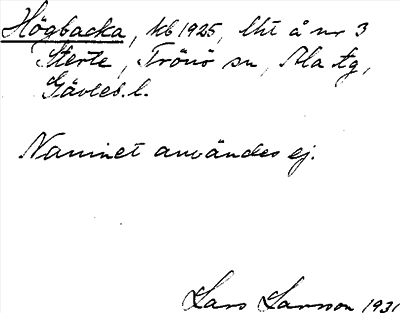 Högbacka, kb 1925, lht å nr 3
Sterte, Trönö sn, Ala tg,
Gävleb. l.
Namnet användes ej.
Lars Larsson 1931